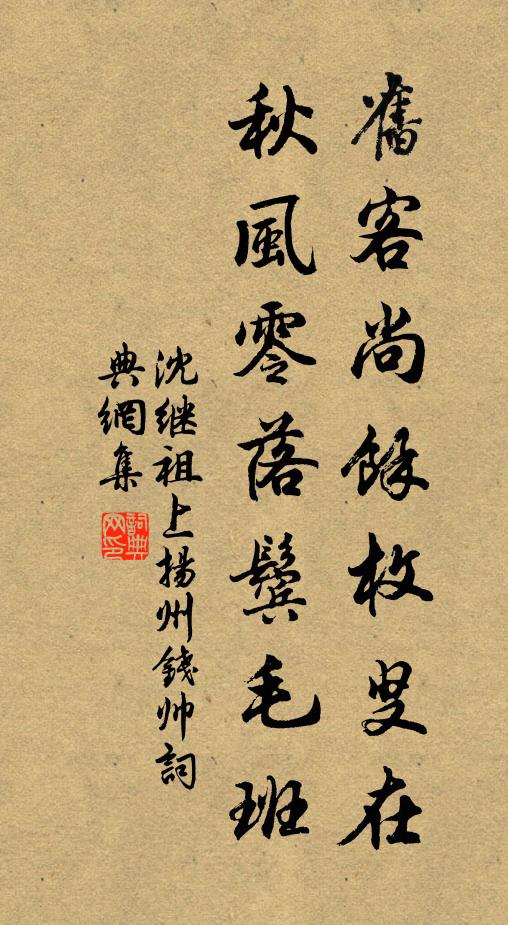 舊客尚餘枚叟在
秋風零落鬢毛班
沈继祖上揚州錢帅詞
典網集
詞典
网印